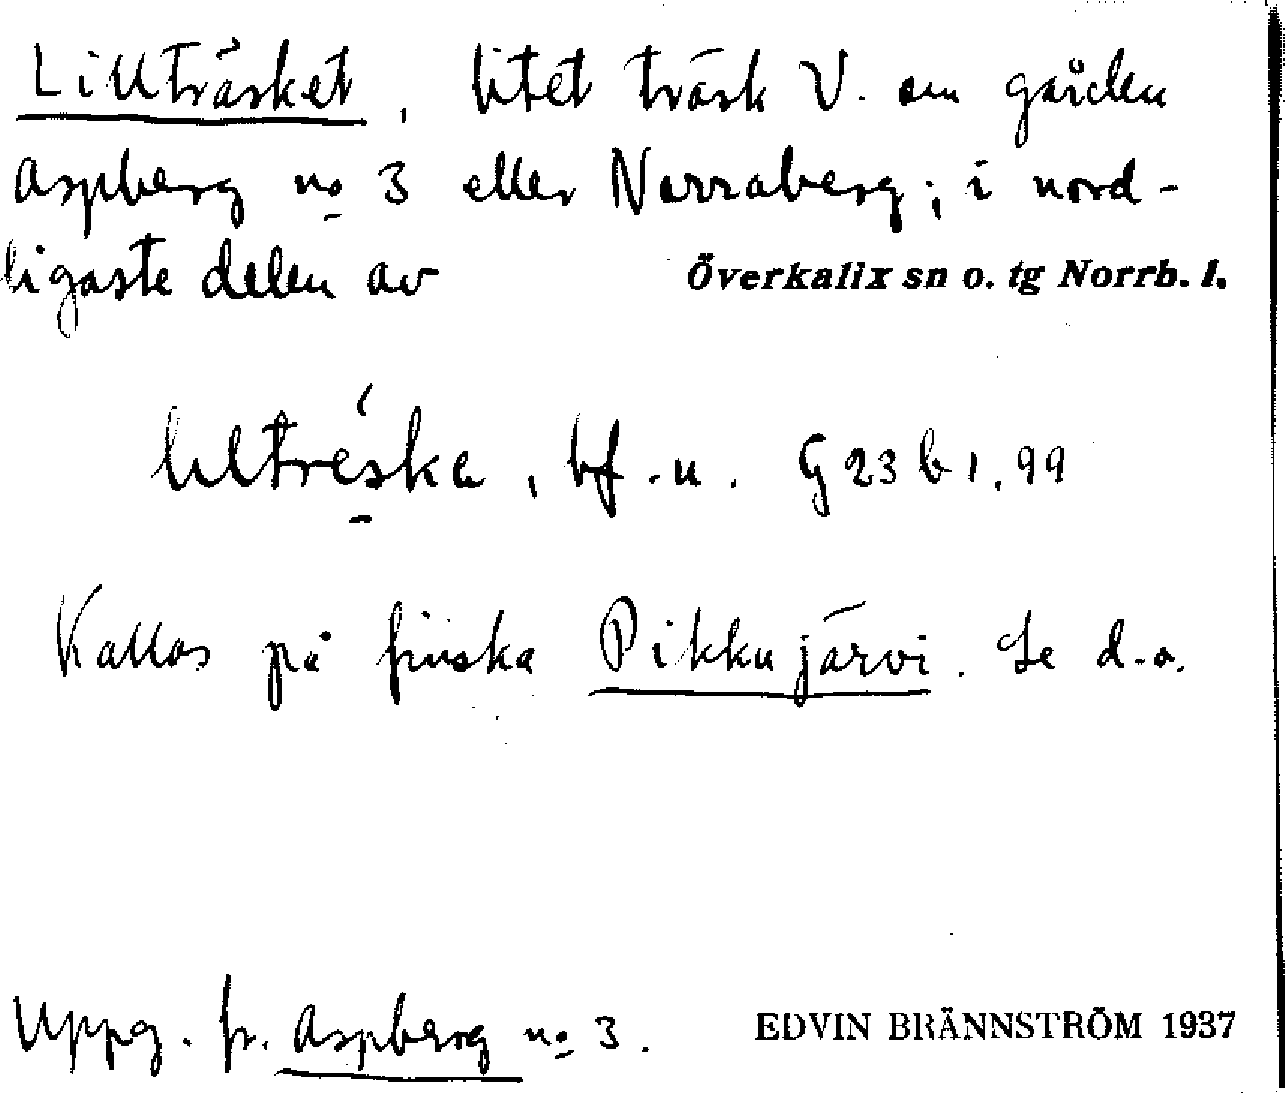 Lillträsket, litet träsk V. om gården
Aspberg no 3 eller Norraberg; i nord-
ligaste delen av Överkalix sn o. tg Norrb. l.
liltrėska, bf. n. G 23 b 1, 99
Kallas på finska Pikkujärvi. Se d.o.
Uppg. fr. Aspberg no 3. EDVIN BRÄNNSTRÖM 1937